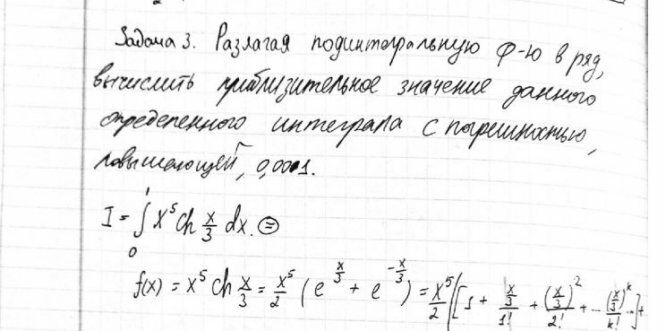 Задача 3. Разлагая подинтегральную ф-ю в ряд,
вычислить приблизительное значение данного
определенного интеграла с погрешностью,
0,0001.
I = ∫₀¹ x⁵ ch x/3 dx. ⊜
f(x) = x⁵ ch x/3 = x⁵/2 (e^(x/3) + e^(-x/3)) = x⁵/2 [[1 + (x/3)/1! + (x/3)²/2! + ... (x/3)^k/k! ...] +